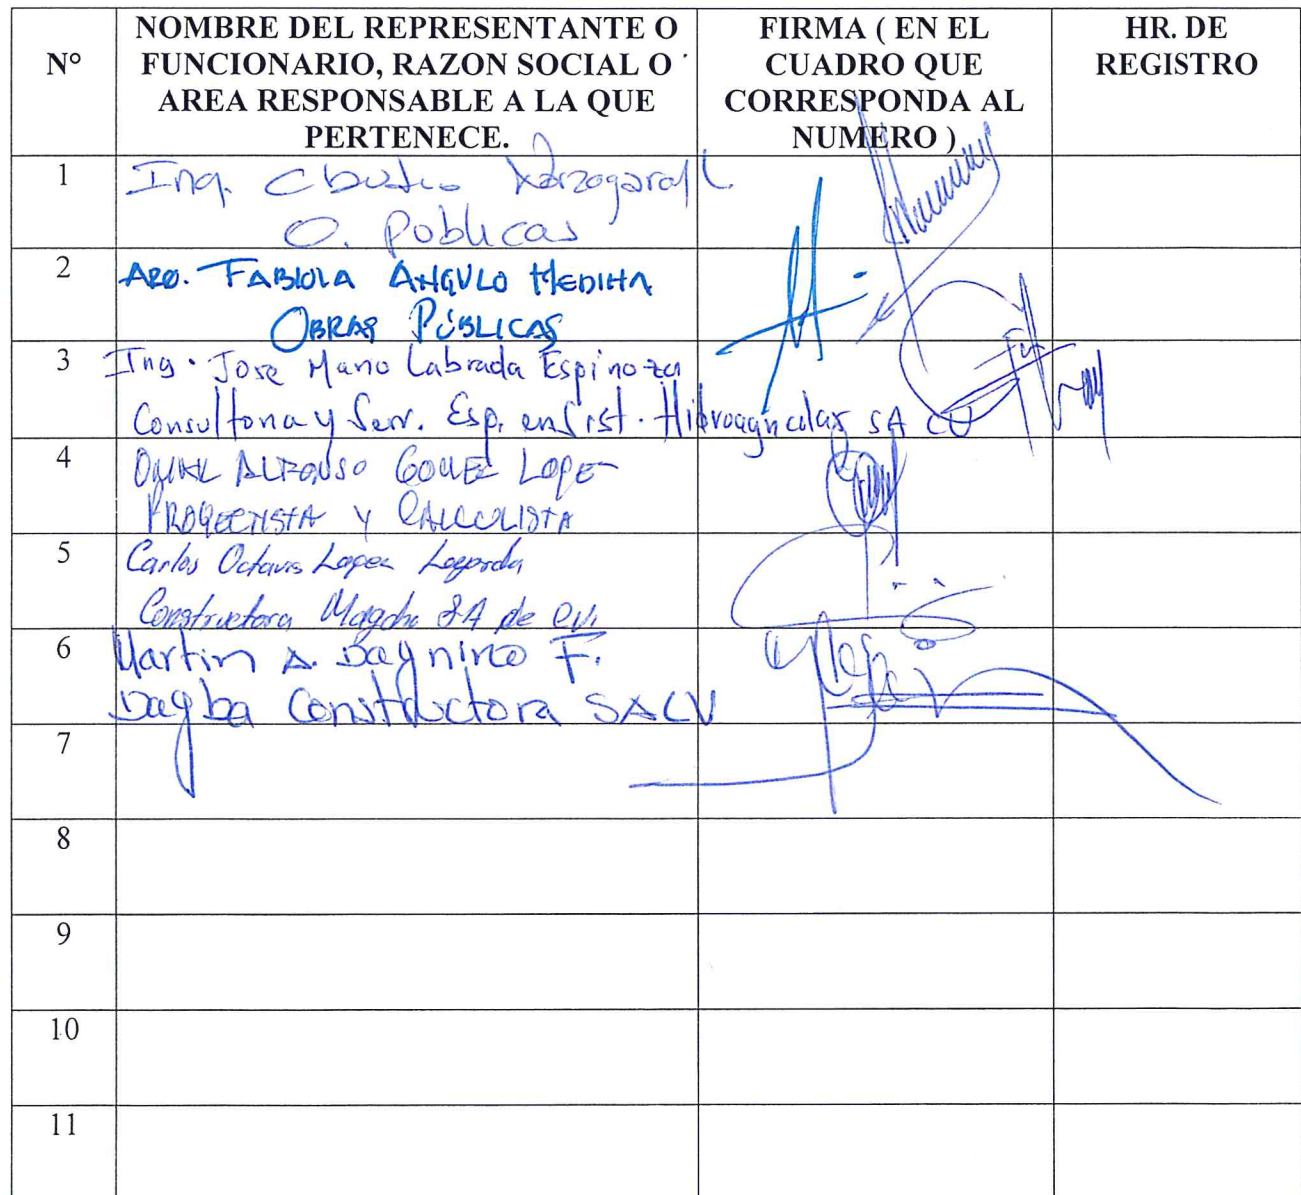 N°
NOMBRE DEL REPRESENTANTE O
FUNCIONARIO, RAZON SOCIAL O
AREA RESPONSABLE A LA QUE
PERTENECE.
FIRMA ( EN EL
CUADRO QUE
CORRESPONDA AL
NUMERO )
HR. DE
REGISTRO
1
Ing.
O. Publicas
2
ARQ. FABIOLA ANGULO MEDINA
OBRAS PÚBLICAS
3
Ing. Jose Mario Labrada Espinoza
Consultoria y Serv. Esp. en Sist. Hidroagricolas SA CV
4
OMAR ALFONSO GOMEZ LOPEZ
PROYECTISTA Y CALCULISTA
5
Carlos Octavio Lopez
Constructora SA de CV.
6
Martin A. Dagnino F.
Dagba Constructora SACV
7
8
9
10
11